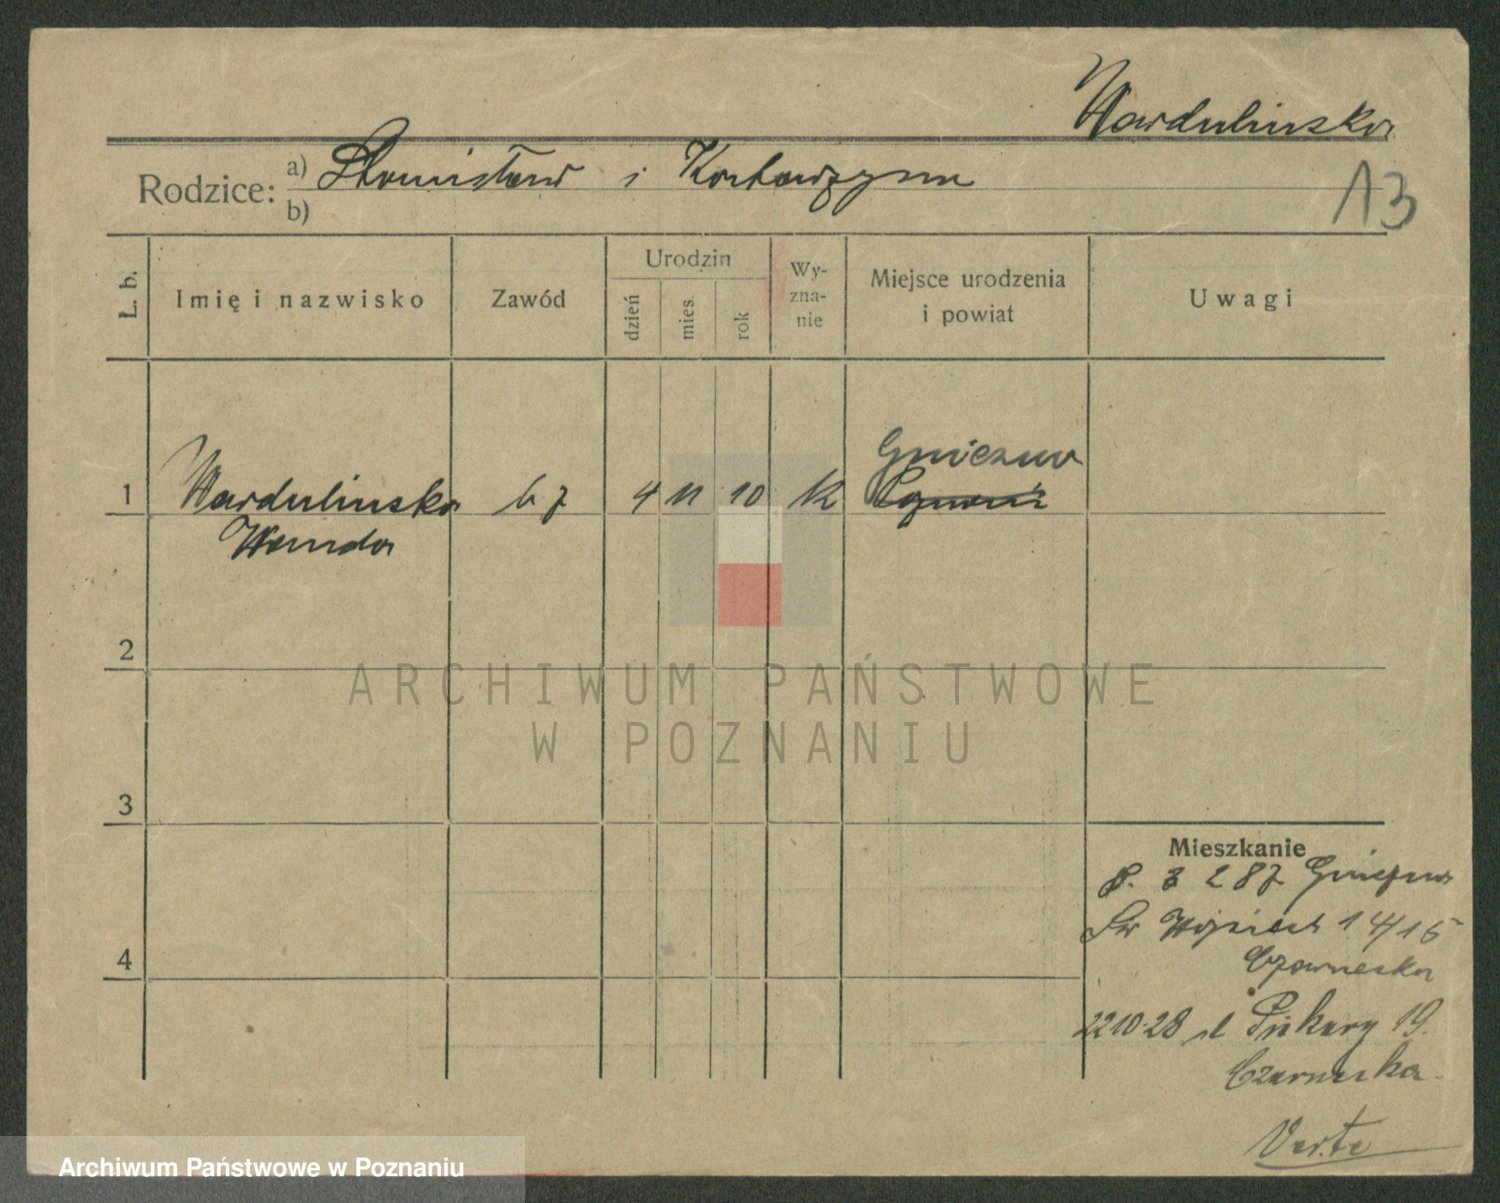 Wardulinska
Rodzice: a) Stanisław i Katarzyna
b)
13
Ł. b.
Imię i nazwisko
Zawód
Urodzin
dzień
mies.
rok
Wy-
zna-
nie
Miejsce urodzenia
i powiat
Uwagi
Gniezno
1 Wardulinska b z 4 11 10 K Poznań
Wanda
2
3
4
Mieszkanie
8. 3 287 Gniezno
Św Wojciech 14/15
Czarnecka
22 10 28 Piekary 19.
Czarnecka
Verte
ARCHIWUM PAŃSTWOWE
W POZNANIU
Archiwum Państwowe w Poznaniu